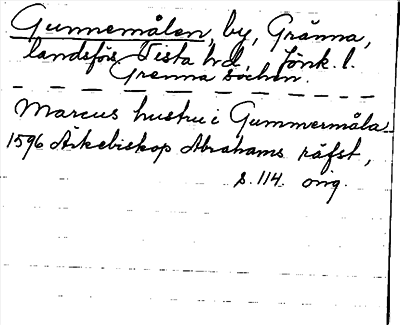 Gunnemålen, by, Gränna,
landsförs. Vista hd, Jönk. l.
Grenna socken.
Marcus hustru i Gummermåla
1596 Ärkebiskop Abrahams räfst,
s. 114. orig.